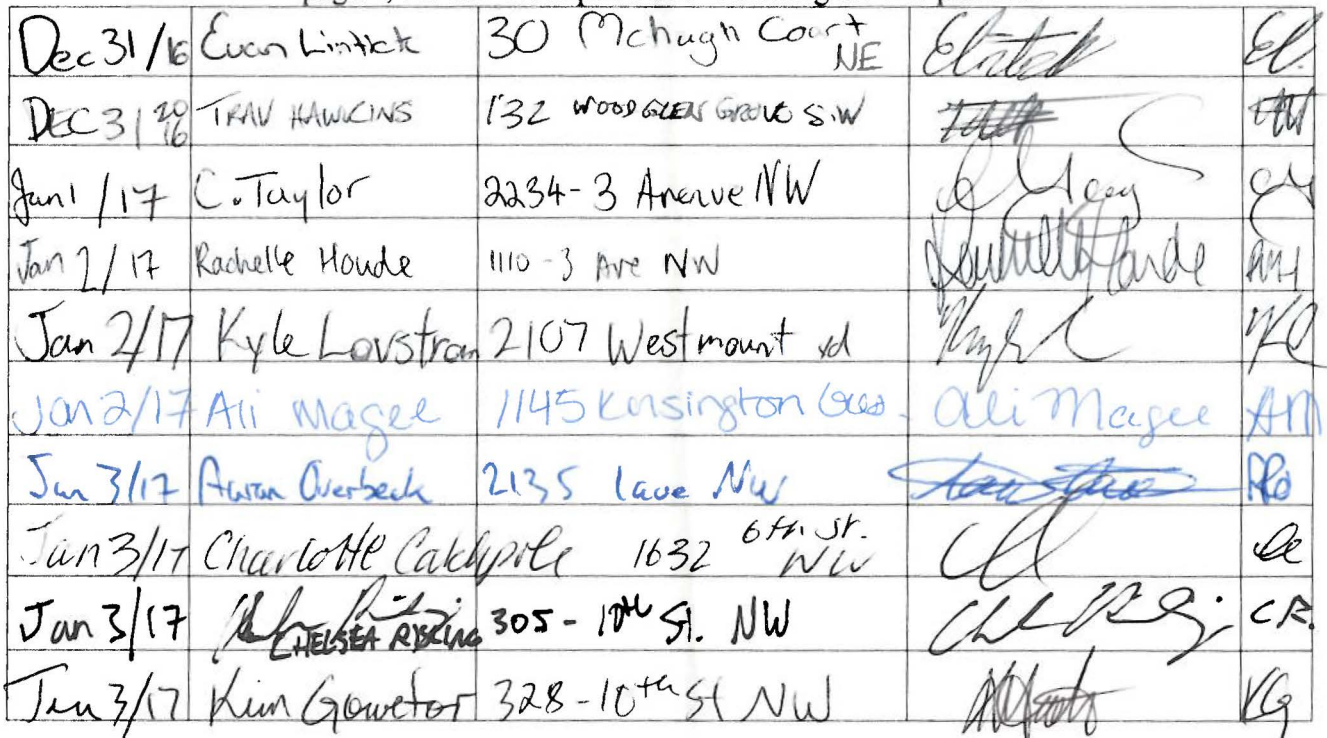 Dec 31/16 Evan Lintick 30 Mchugh Court NE EL.
DEC 31 2016 TRAV HAWKINS 132 WOODGLEN GROVE S.W TH
Jan 1/17 C. Taylor 2234-3 Avenue NW
Jan 2/17 Rachelle Houde 1110-3 Ave NW Rachelle Houde RH
Jan 2/17 Kyle Lovstrom 2107 Westmount rd KL
Jan 2/17 Ali Magee 1145 Kensington Cres. Ali Magee AM
Jan 3/17 Aaran Overbeck 2135 1ave NW AO
Jan 3/17 Charlotte Catchpole 1632 6th St. NW CC
Jan 3/17 CHELSEA 305-10th St. NW C.R.
Jan 3/17 Kim Gowetor 328-10th St NW KG